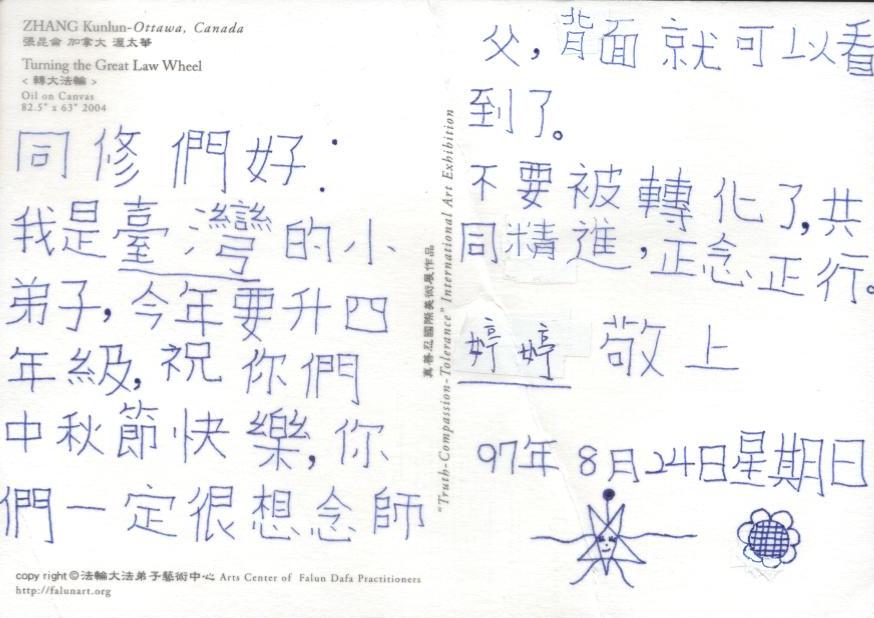 ZHANG Kunlun-Ottawa, Canada
張崑崙 加拿大 渥太華
Turning the Great Law Wheel
< 轉大法輪 >
Oil on Canvas
82.5" x 63" 2004
同修們好：
我是臺灣的小
弟子，今年要升四
年級，祝你們
中秋節快樂，你
們一定很想念師
copy right ©法輪大法弟子藝術中心 Arts Center of Falun Dafa Practitioners
http://falunart.org
真善忍國際美術展作品
"Truth-Compassion-Tolerance" International Art Exhibition
父，背面就可以看
到了。
不要被轉化了，共
同精進，正念正行。
婷婷 敬上
97年 8月24日星期日